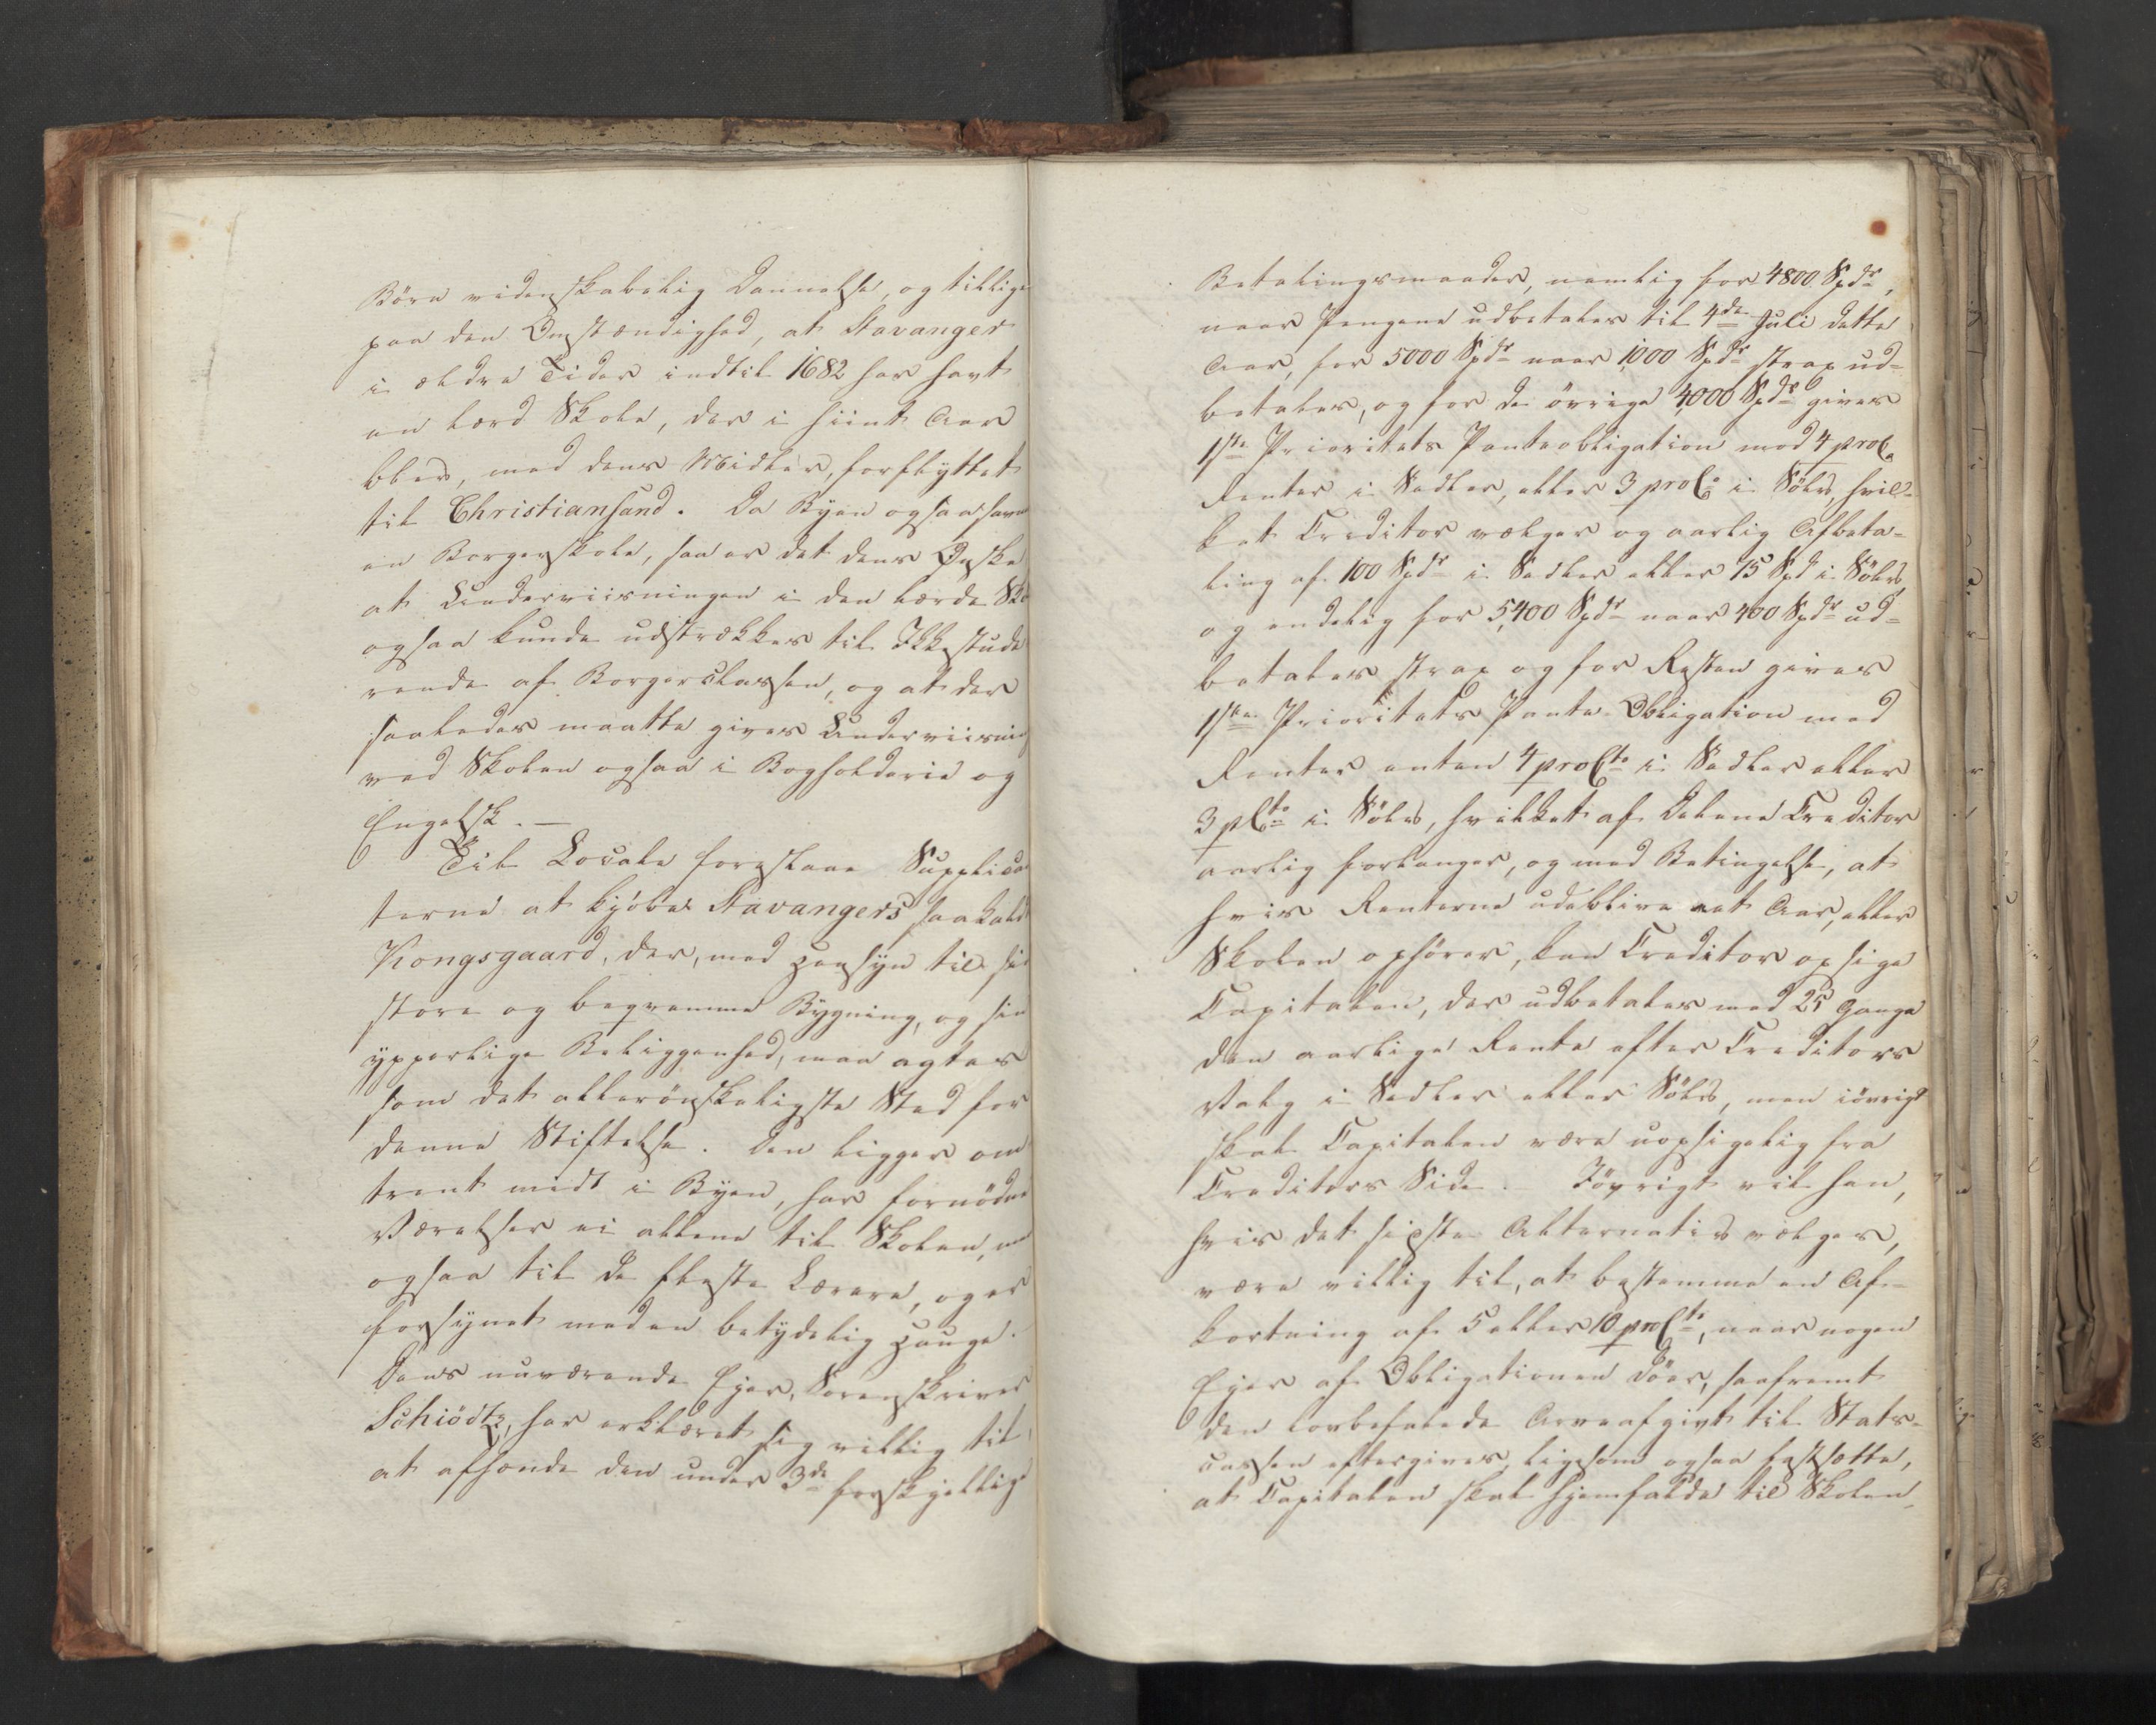 Börn videnskabelig Dannelse, og tillige
paa den Omstændighed, at Stavanger
i ældre Tider indtil 1682 har havt
en lærd Skole, der i hiint Aar
blev, med dens Midler, forflyttet
til Christiansand. Da Byen ogsaa savn
en Borgerskole, saa er det dens Ønske
at Underviisningen i den lærde Sko
ogsaa kunde udstrækkes til Ikkestude
rende af Borgerclassen, og at der
saaledes maatte gives Underviisning
ved Skolen ogsaa i Bogholderie og
Engelsk. —
Til Locale foreslaae Supplican
terne at kjöbes Stavangers saakald
Kongsgaard, der, med Hensyn til sin
store og beqvemme Bygning, og sin
ypperlige Beliggenhed, maa agtes
som det allerönskeligste Sted for
denne Stiftelse. Den ligger om
trent midt i Byen, har fornödne
Værelser ei allene til Skolen, men
ogsaa til de fleste Lærere, og er
forsynet med en betydelig Hauge.
Dens nuværende Eier, Sorenskriver
Schiödtz, har erklæret sig villig til,
at afhænde den under 3de forskjellige
Betalingsmaader, nemlig for 4800 Spdr,
naar Pengene udbetales til 4de Juli dette
Aar, for 5000 Spdr naar 1000 Spdr strax ud-
betales, og for de övrige 4000 Spdr gives
1ste Prioritets Panteobligation mod 4 proC
Renter i Sedler, eller 3 proCto i Sölv, hvil-
ket Creditor vælger og aarlig Afbeta-
ling af 100 Spdr i Sedler eller 75 Spd i Sölv,
og endelig for 5,400 Spdr naar 400 Spdr ud-
betales strax og for Resten gives
1ste Prioritets Pante-Obligation med
Renter enten 4 proCto i Sedler eller
3 pCto i Sölv, hvilket af Delene Creditor
aarlig forlanger, og med Betingelse, at
hvis Renterne udeblive eet Aar, eller
Skolen ophörer, kan Creditor opsige
Capitalen, der udbetales med 25 Gange
den aarlige Rente efter Creditors
Valg i Sedler eller Sölv, men iövrigt
skal Capitalen være uopsigelig fra
Creditors Side. — Iövrigt vil han,
hvis det sidste Alternativ vælges,
være villig til, at bestemme en Af-
kortning af 5 eller 10 proCto, naar nogen
Eier af Obligationen döer, saafremt
den lovbefalede Arveafgivt til Stats-
cassen eftergives, ligesom ogsaa fastsætte,
at Capitalen skal hjemfalde til Skolen,